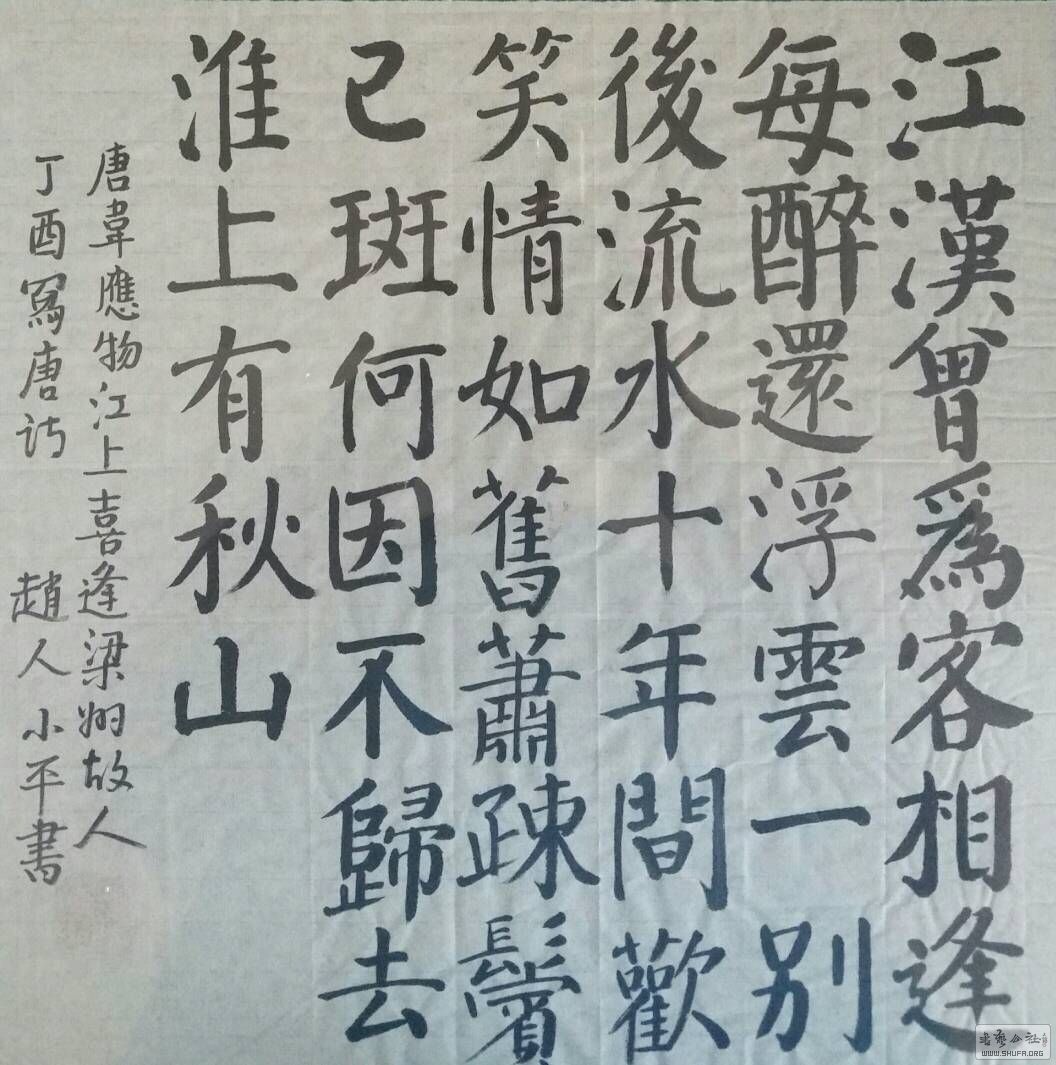 江漢曾爲客相逢
每醉還浮雲一別
後流水十年間歡
笑情如舊蕭疎鬢
已斑何因不歸去
淮上有秋山
唐韋應物江上喜逢梁州故人
丁酉寫唐詩 趙人小平書
书艺公社
WWW.SHUFA.ORG